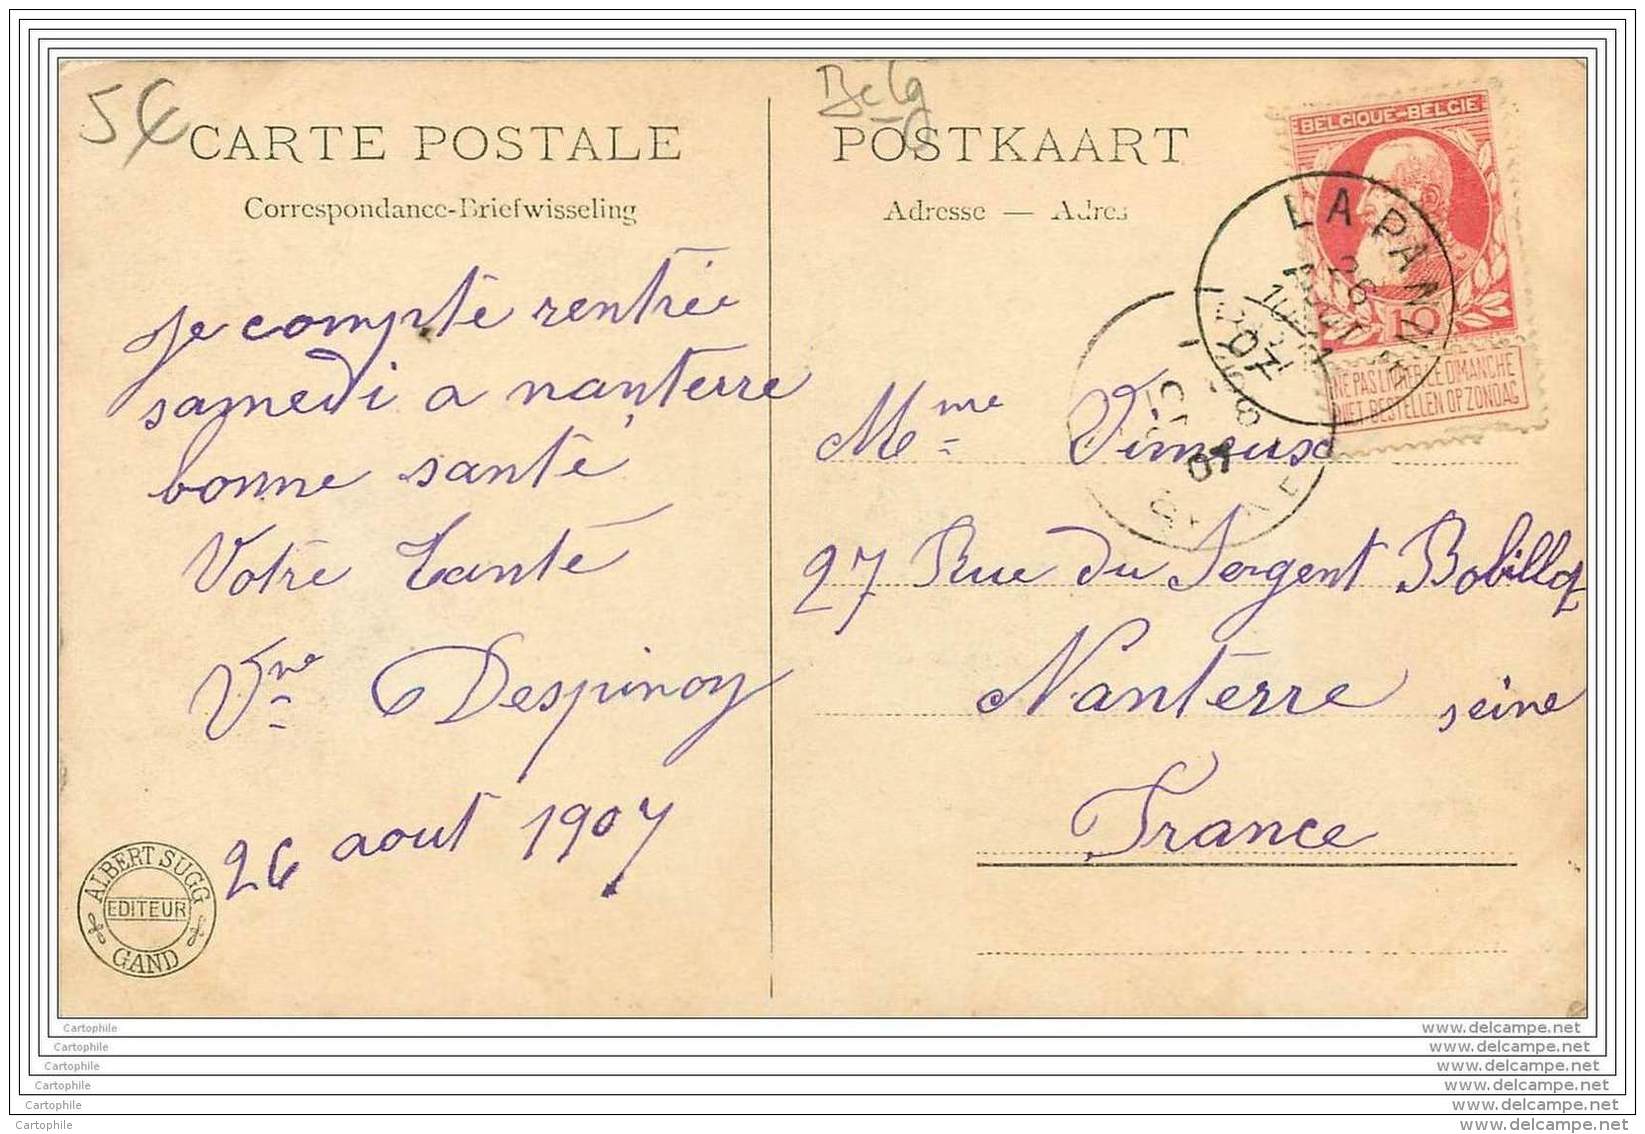 5€
Belg
CARTE POSTALE
Correspondance-Briefwisseling
je compte rentrée
samedi a nanterre
bonne santé
Votre tante
Vve Despinoy
26 aout 1907
ALBERT SUGG
EDITEUR
GAND
POSTKAART
Adresse — Adres
BELGIQUE-BELGIE
10
NE PAS LIVRER LE DIMANCHE
NIET BESTELLEN OP ZONDAG
LA PANNE
26
07
07
Mme Vimeux
27 Rue du Sergent Bobillot
Nanterre seine
France
Cartophile
Cartophile
Cartophile
Cartophile
Cartophile
Cartophile
www.delcampe.net
www.delcampe.net
www.delcampe.net
www.delcampe.net
www.delcampe.net
www.delcampe.net